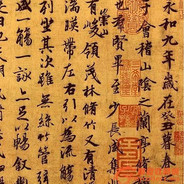 永和九年歲在癸丑暮春之
于會稽山陰之蘭亭脩
也羣賢畢至少長咸集
有崇山峻領茂林脩竹又有清
湍暎帶左右引以為流觴
坐其次雖無絲竹管
一觴一詠亦足以暢敘